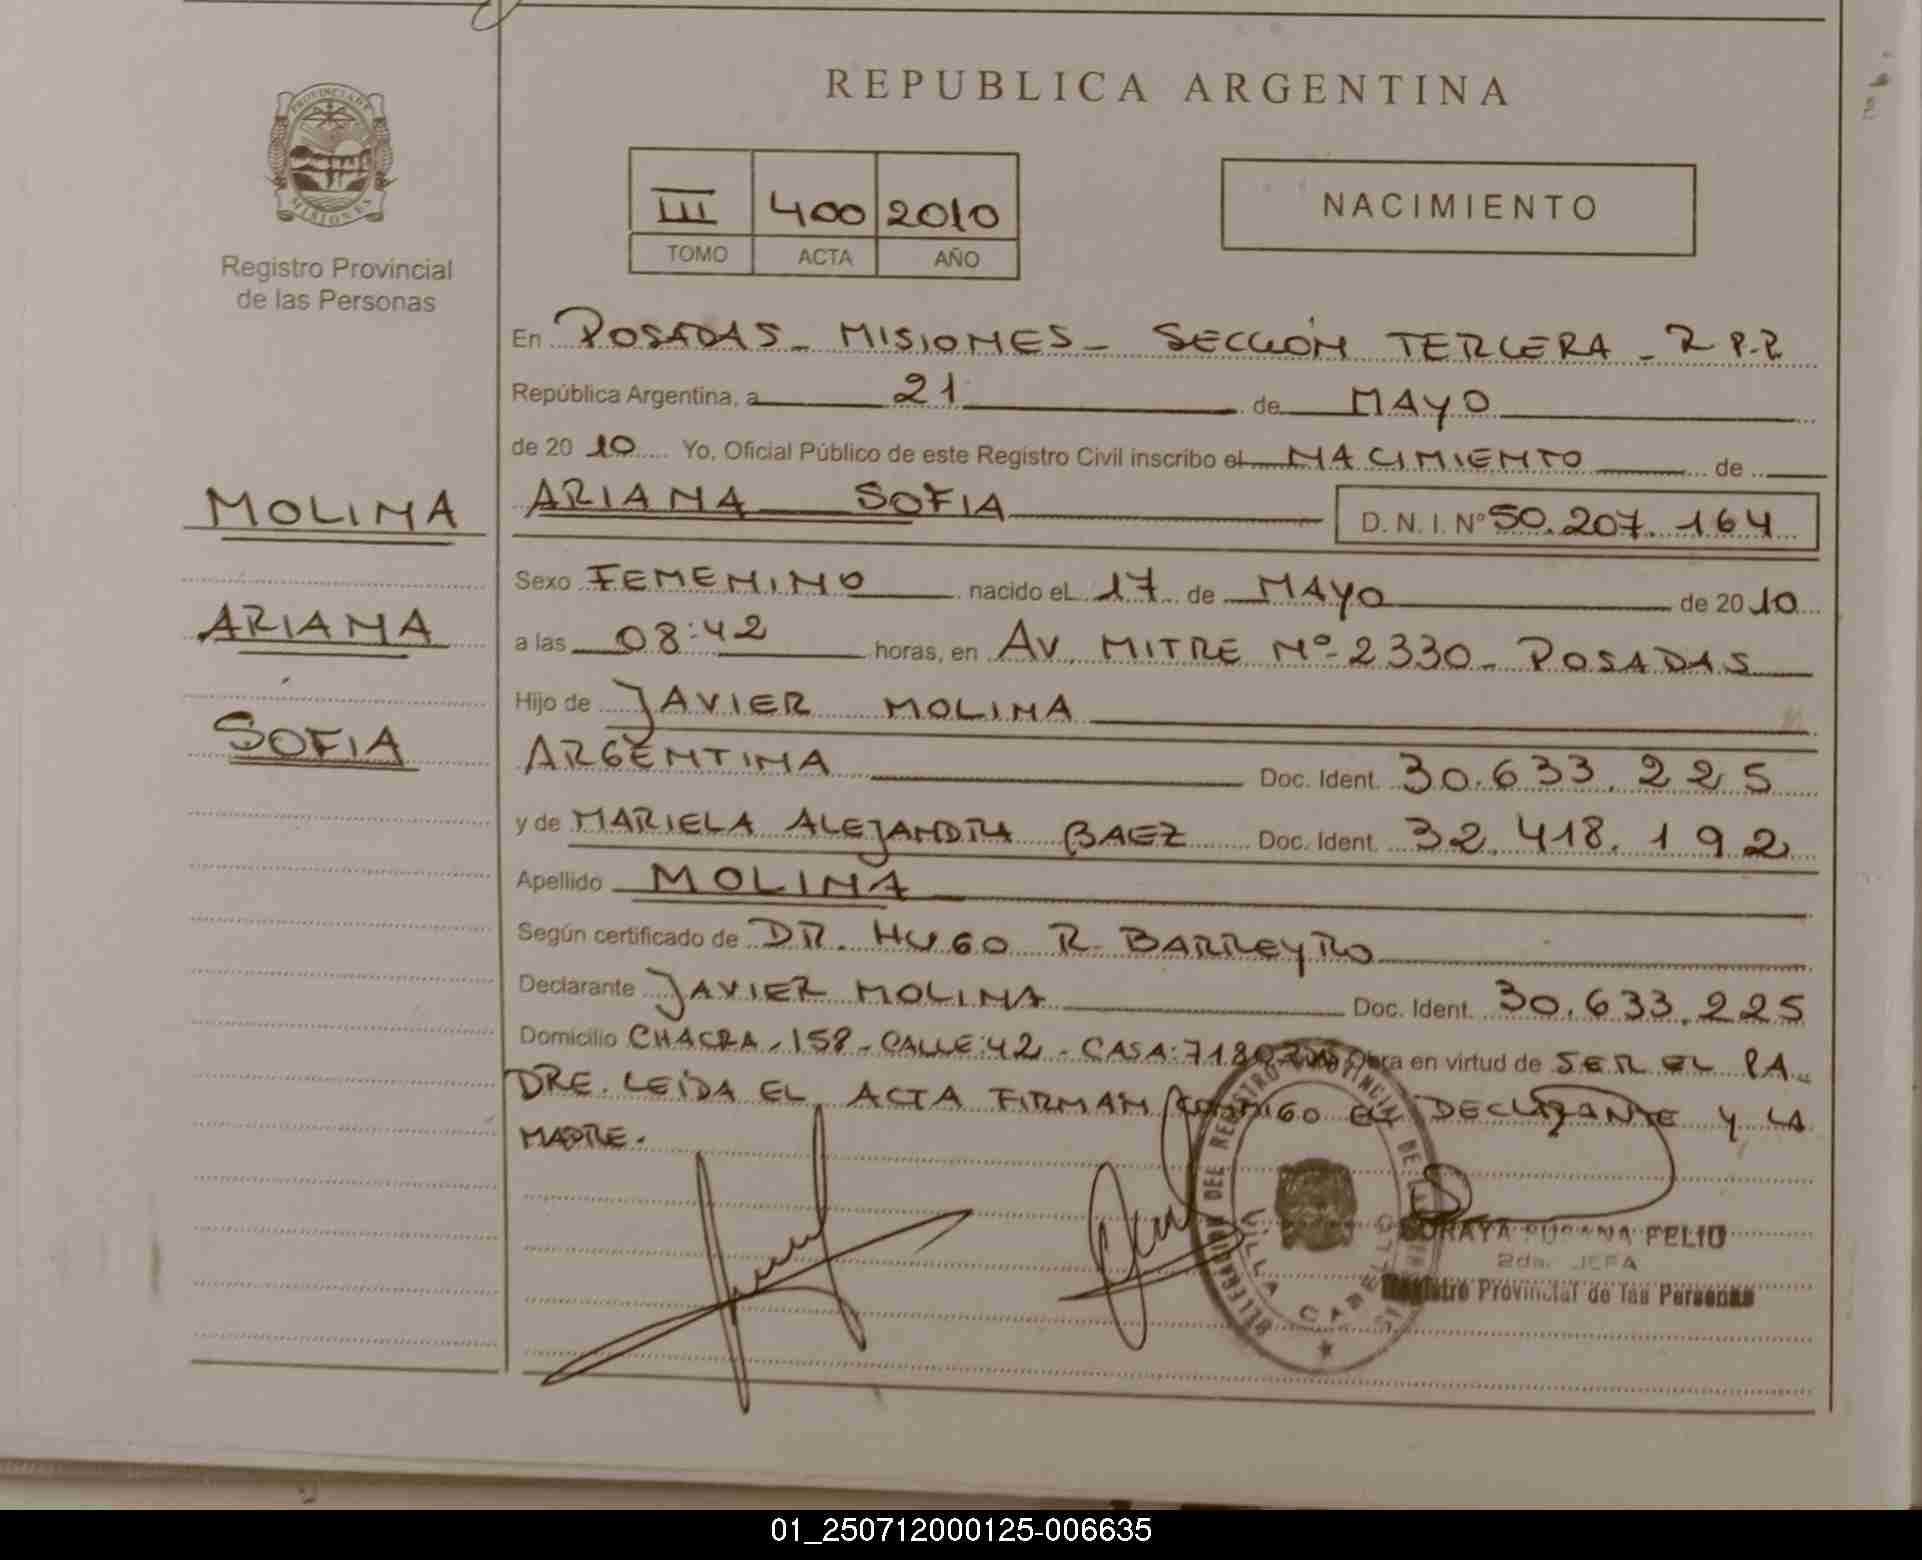 REPUBLICA ARGENTINA
PROVINCIA DE MISIONES
Registro Provincial
de las Personas
III 400 2010
TOMO ACTA AÑO
NACIMIENTO
En POSADAS - MISIONES - SECCIÓN TERCERA - R.P.P.
República Argentina, a 21 de MAYO
de 2010 Yo, Oficial Público de este Registro Civil inscribo el NACIMIENTO de
MOLINA
ARIANA SOFIA D. N. I. Nº 50.207.164
Sexo FEMENINO nacido el 17 de MAYO de 2010
ARIANA
a las 08:42 horas, en AV. MITRE Nº 2330 - POSADAS
Hijo de JAVIER MOLINA
SOFIA
ARGENTINA Doc. Ident. 30.633.225
y de MARIELA ALEJANDRA BAEZ Doc. Ident. 32.418.192
Apellido MOLINA
Según certificado de DR. HUGO R. BARREYRO
Declarante JAVIER MOLINA Doc. Ident. 30.633.225
Domicilio CHACRA - 158 - CALLE: 42 - CASA: Obra en virtud de SER EL PA-
DRE. LEIDA EL ACTA FIRMAN CONMIGO EL DECLARANTE Y LA
MADRE.
DELEGACION DEL REGISTRO PROVINCIAL DE LAS
VILLA CABELLO
SORAYA SUSANA FELIU
2da. JEFA
Registro Provincial de las Personas
01_250712000125-006635